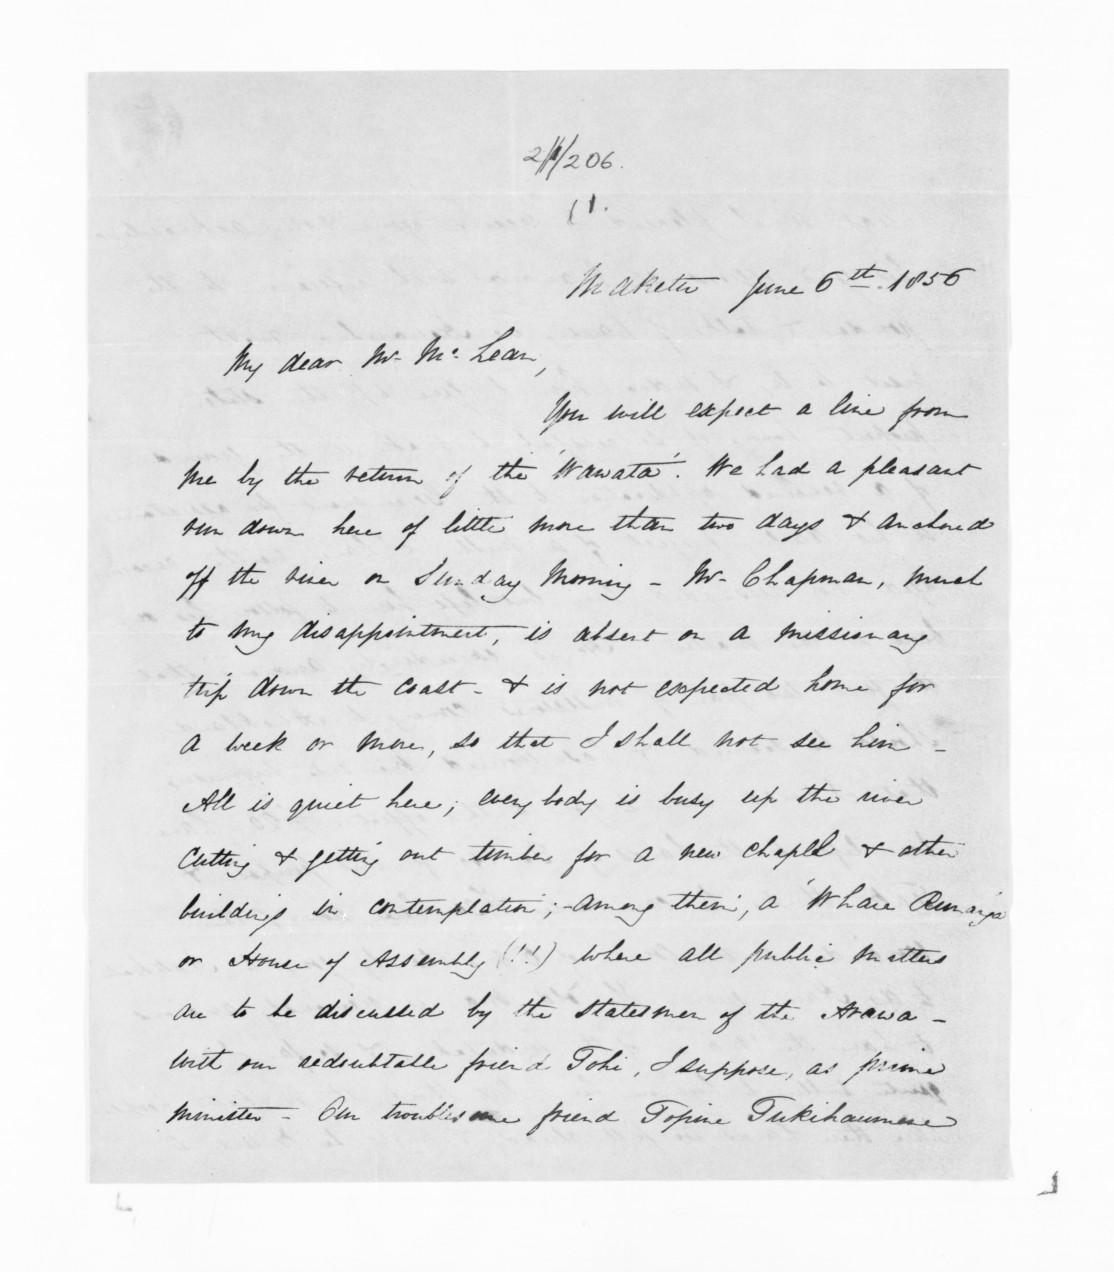 206.
(1.
Maketu June 6th. 1856
My dear Mr. McLean,
You will expect a line from
me by the return of the 'Wawata'. We had a pleasant
run down here of little more than two days & anchored
off the river on Sunday Morning - Mr. Chapman, much
to my disappointment, is absent on a missionary
trip down the coast - & is not expected home for
a week or more, so that I shall not see him -
All is quiet here; everybody is busy up the river
cutting & getting out timber for a new chapel & other
buildings in contemplation; - among them, a 'Whare Runanga
or House of Assembly (!!!) where all public matters
are to be discussed by the Statesmen of the Arawa -
with our redoubtable friend Tohi, I suppose, as prime
minister - Our troublesome friend Topine Tukihaumene